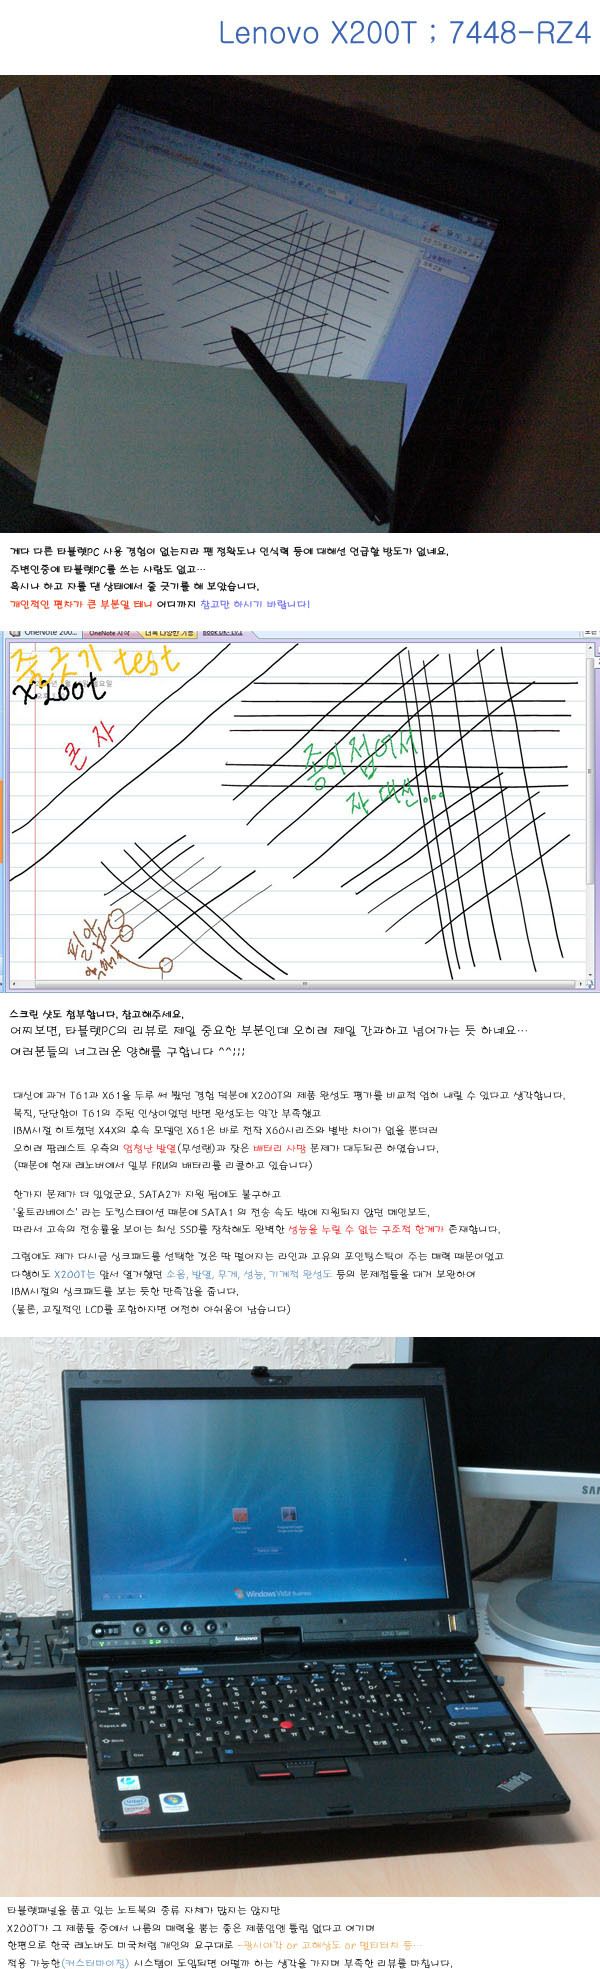 Lenovo X200T ; 7448-RZ4
게다 다른 타블렛PC 사용 경험이 없는지라 펜 정확도나 인식력 등에 대해선 언급할 방도가 없네요.
주변인중에 타블렛PC를 쓰는 사람도 없고…
혹시나 하고 자를 댄 상태에서 줄 긋기를 해 보았습니다.
개인적인 편차가 큰 부분일 테니 어디까지 참고만 하시기 바랍니다!
OneNote 200... OneNote 시작 더욱 다양한 기능
줄긋기 test
x200t
큰 자
종이 접어서
자 대신...
스크린 샷도 첨부합니다. 참고해주세요.
어찌보면, 타블렛PC의 리뷰로 제일 중요한 부분인데 오히려 제일 간과하고 넘어가는 듯 하네요…
여러분들의 너그러운 양해를 구합니다 ^^;;;
대신에 과거 T61과 X61을 두루 써 봤던 경험 덕분에 X200T의 제품 완성도 평가를 비교적 엄히 내릴 수 있다고 생각합니다.
묵직, 단단함이 T61의 주된 인상이었던 반면 완성도는 약간 부족했고
IBM시절 히트쳤던 X4X의 후속 모델인 X61은 바로 전작 X60시리즈와 별반 차이가 없을 뿐더러
오히려 팜레스트 우측의 엄청난 발열(무선랜)과 잦은 배터리 사망 문제가 대두되곤 하였습니다.
(때문에 현재 레노버에서 일부 FRU의 배터리를 리콜하고 있습니다)
한가지 문제가 더 있었군요. SATA2가 지원 됨에도 불구하고
'울트라베이스' 라는 도킹스테이션 때문에 SATA1 의 전송 속도 밖에 지원되지 않던 메인보드,
따라서 고속의 전송률을 보이는 최신 SSD를 장착해도 완벽한 성능을 누릴 수 없는 구조적 한계가 존재합니다.
그럼에도 제가 다시금 씽크패드를 선택한 것은 딱 떨어지는 라인과 고유의 포인팅스틱이 주는 매력 때문이었고
다행히도 X200T는 앞서 열거했던 소음, 발열, 무게, 성능, 기계적 완성도 등의 문제점들을 대거 보완하여
IBM시절의 씽크패드를 보는 듯한 만족감을 줍니다.
(물론, 고질적인 LCD를 포함하자면 여전히 아쉬움이 남습니다)
Windows Vista Business
lenovo
X200 Tablet
ThinkPad
SAM
타블렛패널을 품고 있는 노트북의 종류 자체가 많지는 않지만
X200T가 그 제품들 중에서 나름의 매력을 뽐는 좋은 제품임엔 틀림 없다고 여기며
한편으로 한국 레노버도 미국처럼 개인의 요구대로 -광시야각 or 고해상도 or 멀티터치 등…
적용 가능한(커스터마이징) 시스템이 도입되면 어떨까 하는 생각을 가지며 부족한 리뷰를 마칩니다.